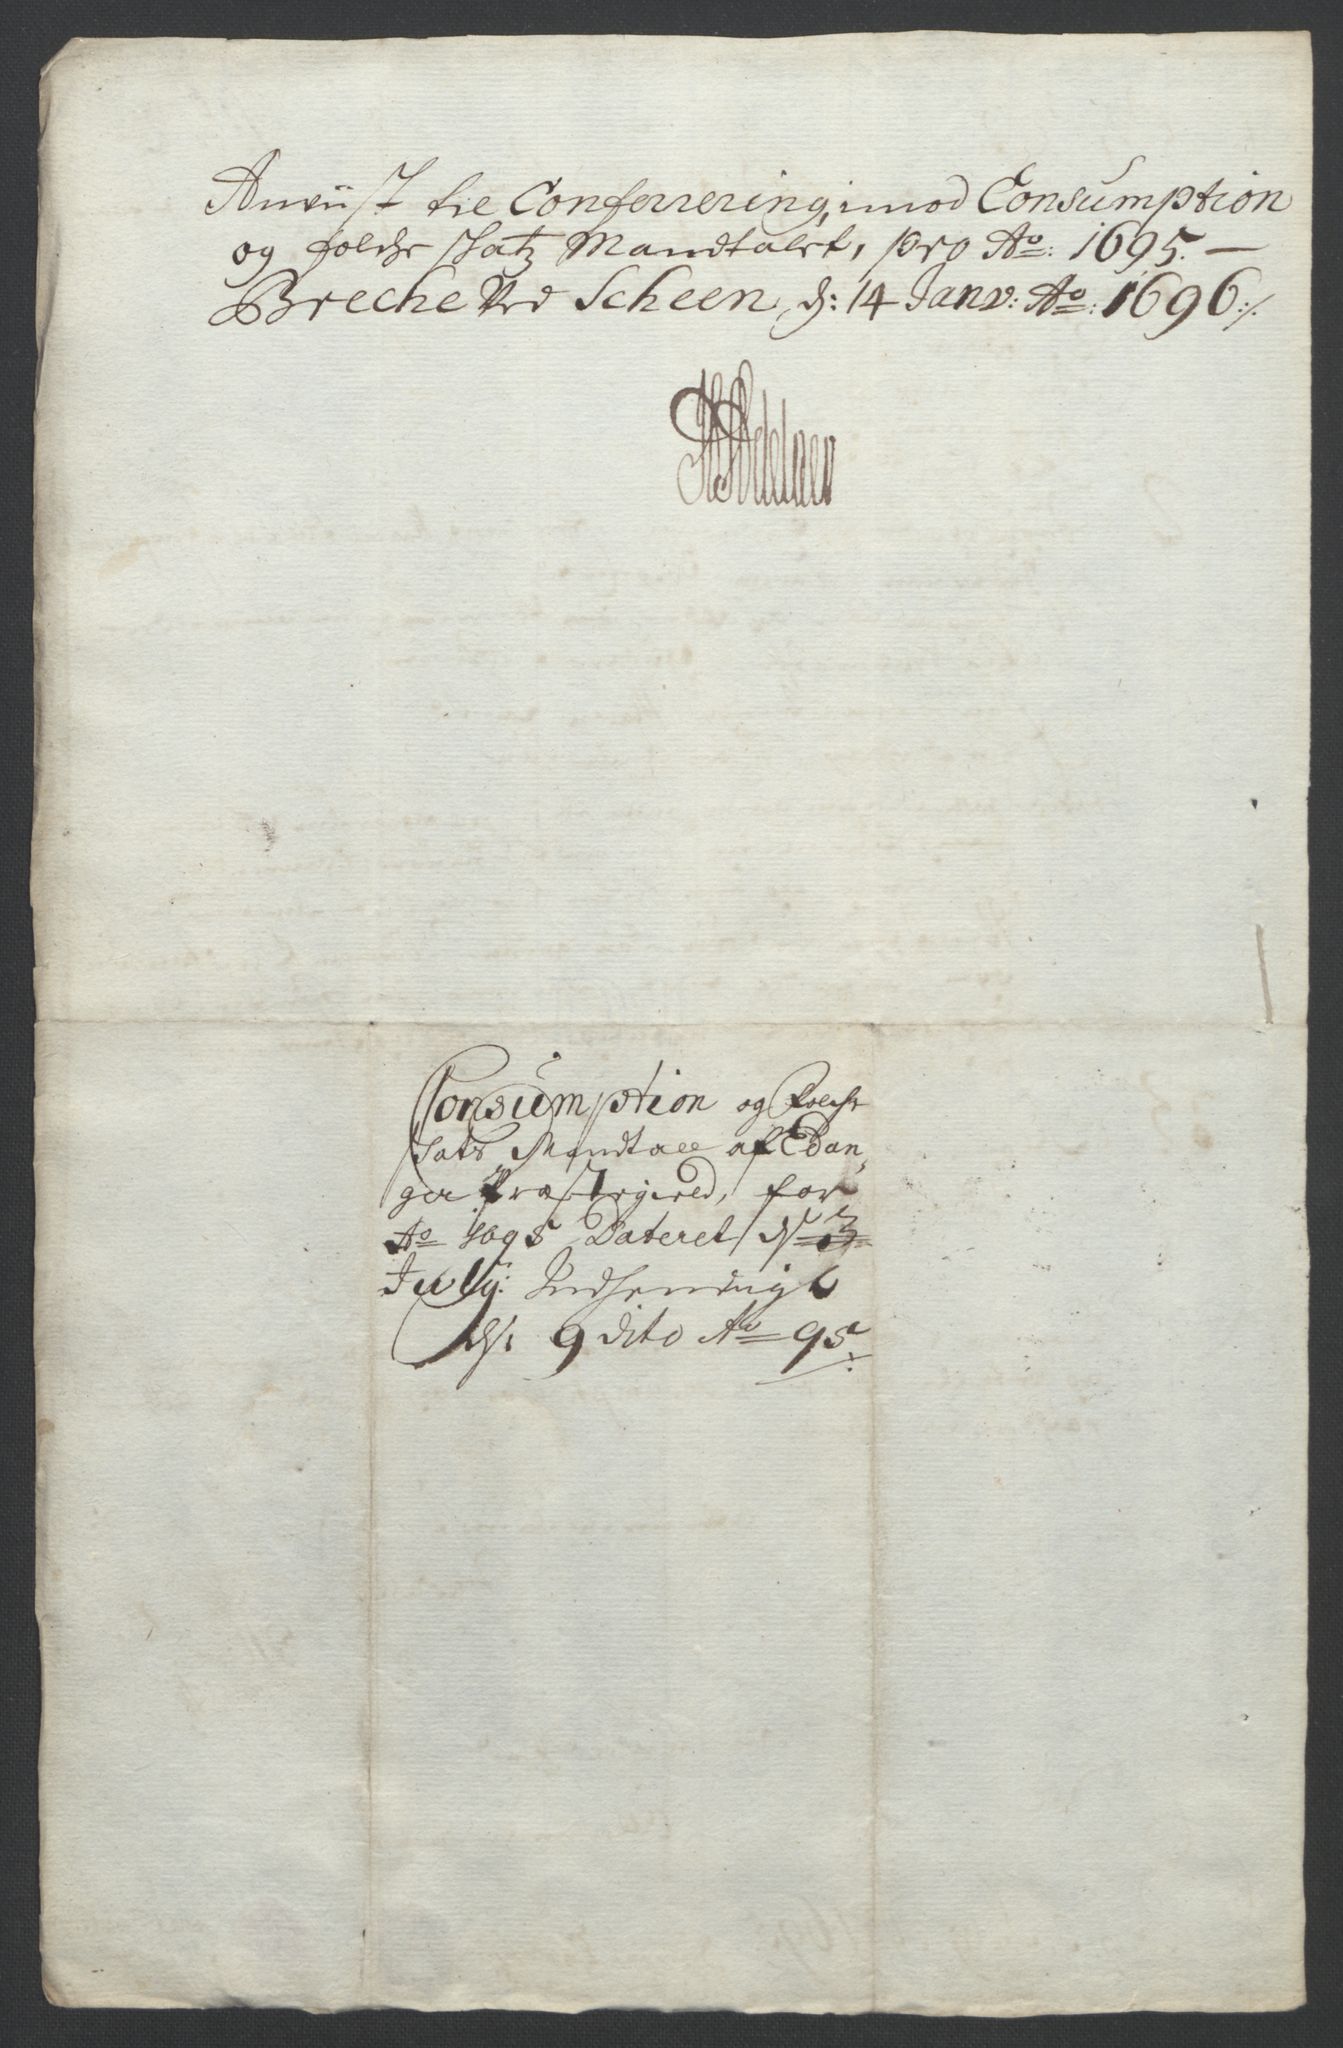 Anviist til Conferrering, imod Consumption
og folche Schatz Mandtalet, pro Ao: 1695. —
Breche Ved Scheen, d: 14 Janv: Ao: 1696 :/.
HAdelaer
Consumption og Folche
Schats Mandtall af Edan,
ger Præstegield, for
Ao 1695 Dateret d 3
July: Indsendigt
d: 9 dito Ao 95